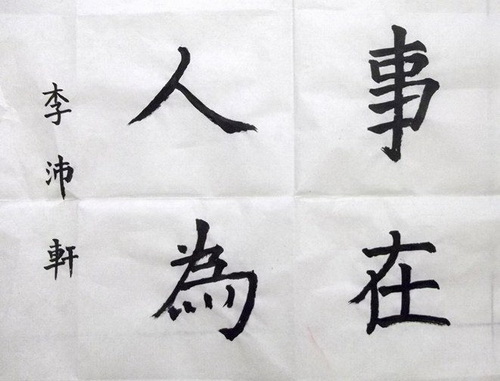 事在
人為
李沛軒